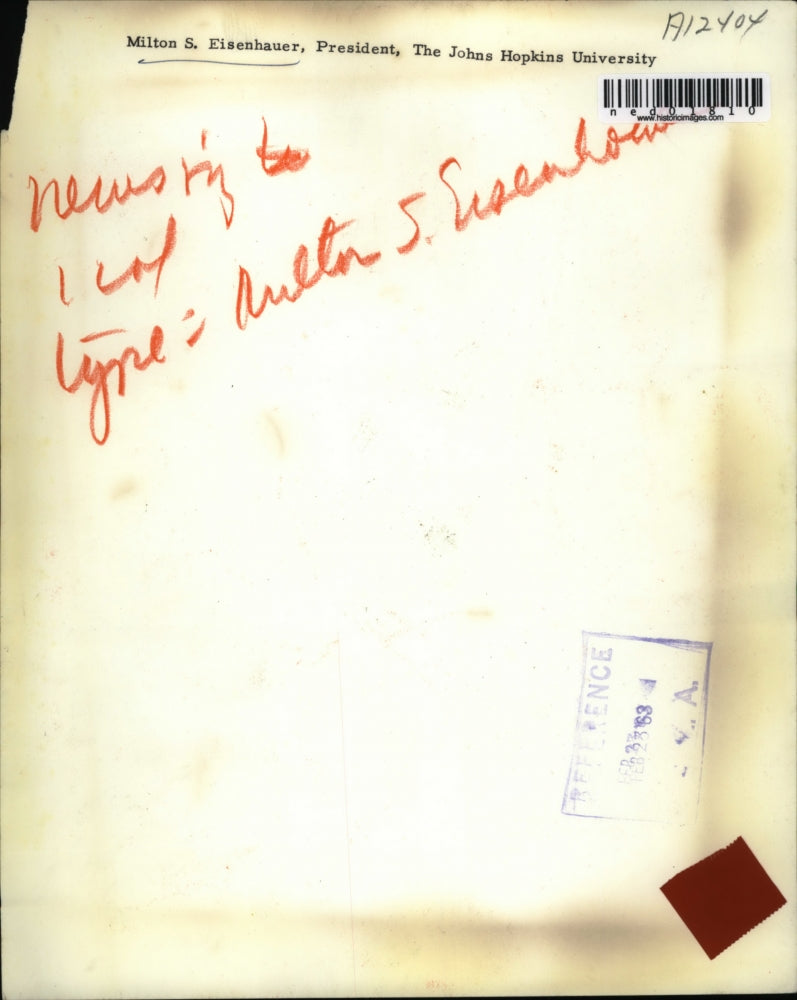 A12404
Milton S. Eisenhauer, President, The Johns Hopkins University
ned01810
www.historicimages.com
news
1 col
type = Milton S. Eisenhower
REFERENCE
FEB 23 '63